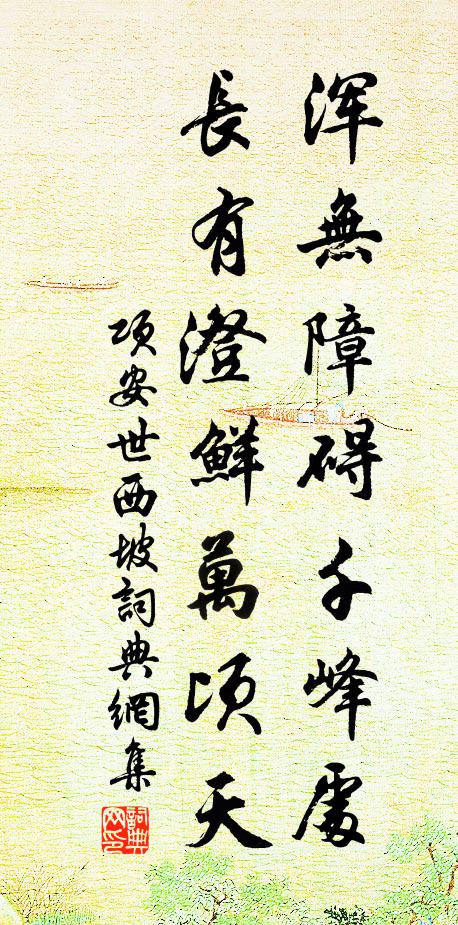 渾無障碍千峰處
長有澄鮮萬頃天
項安世西坡詞典網集
詞典網印